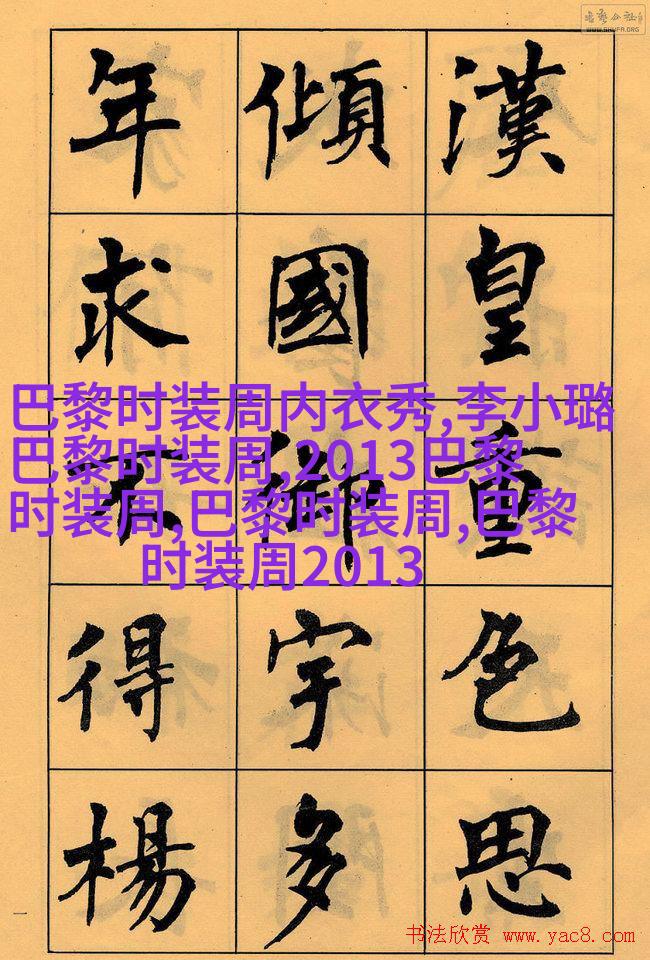 漢皇重色思
傾國御宇多
年求不得楊
巴黎时装周内衣秀,李小璐
巴黎时装周,2013巴黎
时装周,巴黎时装周,巴黎
时装周2013
WWW.SHUFA.ORG
一
书法欣赏 www.yac8.com